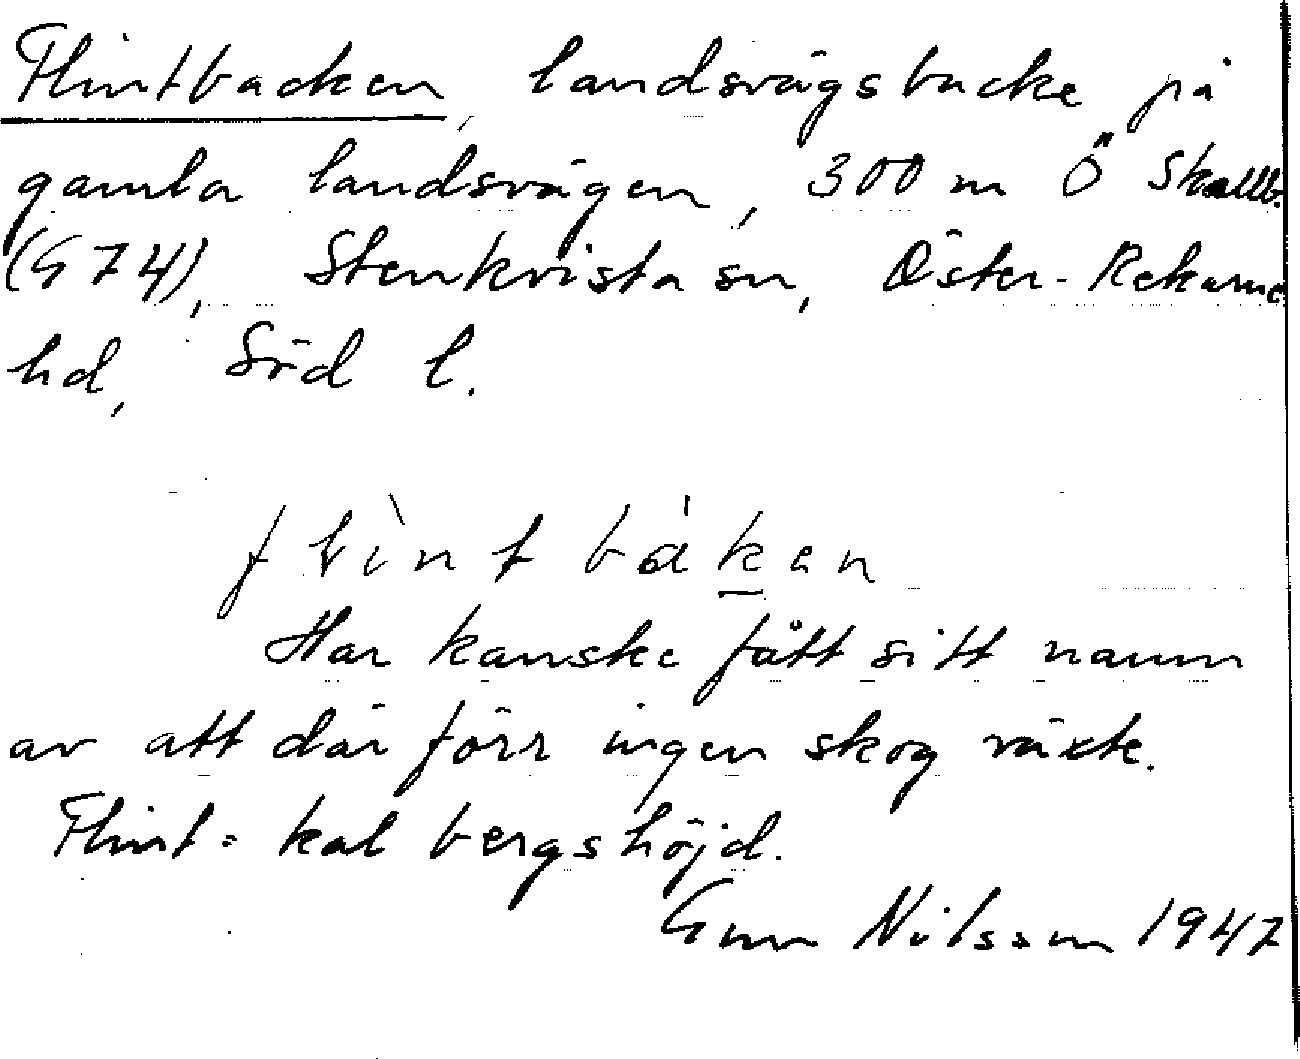 Flintbacken, landsvägsbacke på
gamla landsvägen, 300 m Ö Skallb.
(G 74), Stenkvista sn, Öster-Rekarne
hd, Söd l.
flìntbákan
Har kanske fått sitt namn
av att där förr ingen skog växte.
Flint = kal bergshöjd.
Gun Nilsson 1947